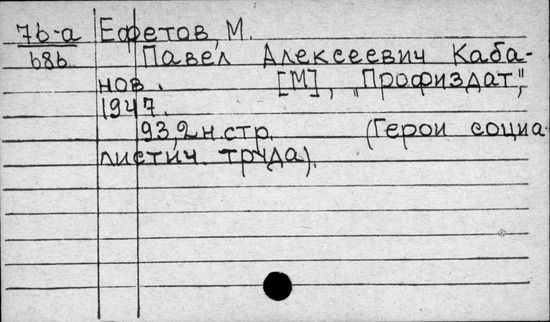 7b-a Ефетов, М.
b8b Павел Алексеевич Каба-
нов. [М], „Профиздат",
1947.
93,2н.стр. (Герои социа
листич. труда).